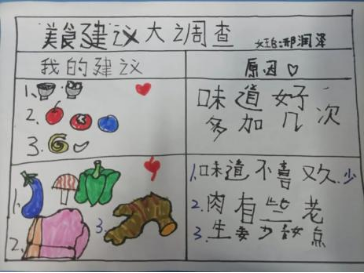 美食建议大调查 大班 邢润泽
我的建议
原因
1.
2.
3.
味道好
多加几次
1.
2.
3.
1.味道不喜欢.少
2.肉有些老
3.生姜少放点